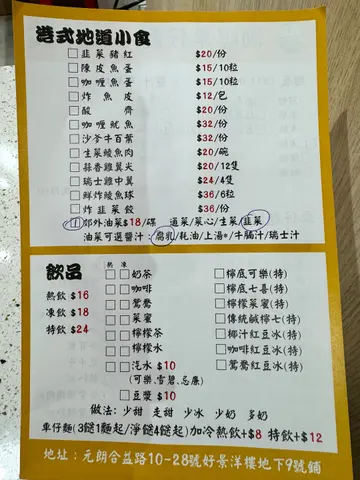 港式地道小食
韮菜豬紅 $20/份
陳皮魚蛋 $15/10粒
咖喱魚蛋 $15/10粒
炸魚皮 $12/包
酸齋 $20/份
咖喱魷魚 $32/份
沙爹牛百葉 $32/份
生菜鯪魚肉 $20/碗
蒜香雞翼尖 $20/12隻
瑞士雞中翼 $24/4隻
鮮炸鯪魚球 $36/6粒
炸韮菜餃 $36/份
郊外油菜$18/碟 通菜/菜心/生菜/韮菜
油菜可選醬汁:腐乳/耗油/上湯*/牛腩汁/瑞士汁
飲品
熱 凍
熱飲 $16
凍飲 $18
特飲 $24
奶茶
咖啡
鴛鴦
菜蜜
檸檬茶
檸檬水
汽水 $10
(可樂,雪碧,忌廉)
豆漿 $10
檸底可樂(特)
檸底七喜(特)
檸檬菜蜜(特)
傳統鹹檸七(特)
椰汁紅豆冰(特)
咖啡紅豆冰(特)
鴛鴦紅豆冰(特)
做法: 少甜 走甜 少冰 少奶 多奶
車仔麵(3餸1麵起/淨餸4餸起)加冷熱飲+$8 特飲+$12
地址: 元朗合益路10-28號好景洋樓地下9號鋪